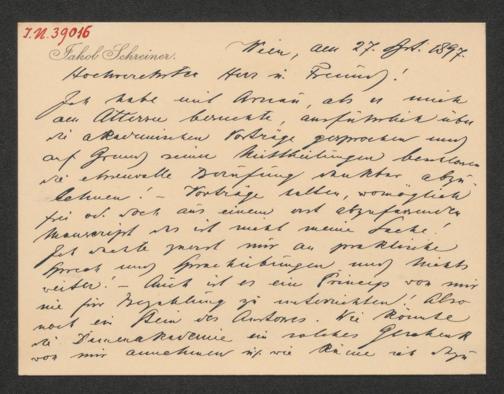 I.N. 39016
Jakob Schreiner.
Wien, am 27. Spt. 1897.
Hochverehrter Herr u Freund!
Ich habe mit Arnau, als er mich
am Attersee besuchte, ausführlich über
die akademischen Vorträge gesprochen und
auf Grund seiner Mittheilungen beschlossen
die ehrenvolle Berufung dankbar abzu
lehnen! – Vorträge halten, womöglich
frei od. doch aus einem erst abzufassenden
Manuscript das ist nicht meine Sache!
Ich dachte zuerst nur an praktische
Sprech und Sprachübungen und Nichts
weiter. – Auch ist es ein Princip von mir
nie für Bezahlung zu unterrichten! Also
noch ein Stein des Anstoses. Wie könnte
die Damenakademie ein solches Geschenk
von mir annehmen u. wie käme ich dazu